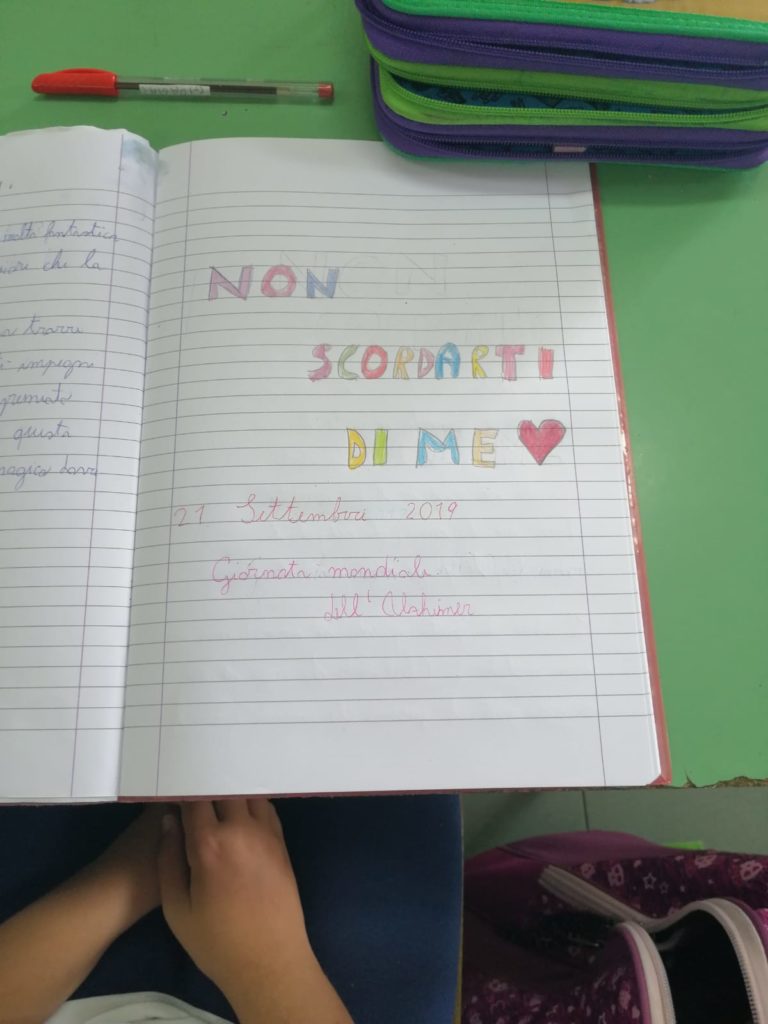 molto fantastica
che la
trarre
impegni
premiata
questa
magica dova
NON
SCORDARTI
DI ME
21 Settembre 2019
Giornata mondiale
dell' Alzhimer